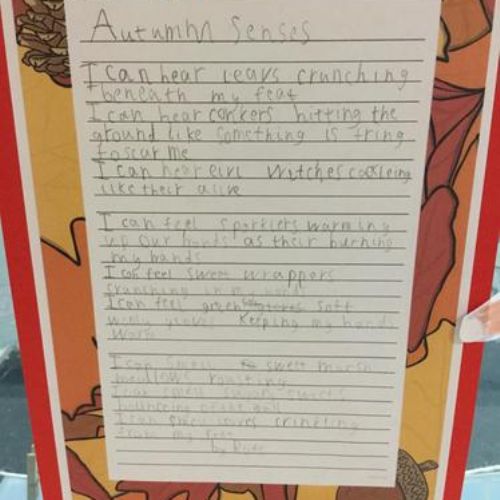 Autumn Senses
I can hear leavs crunching
beneath my feat
I can hear conkers hitting the
ground like something is tring
to scar me
I can hear eiri witches cackleing
like their alive
I can feel sparklers warming
up our hands as their burning
my hands
I can feel sweet wrappers
crunching in my hand
I can feel green soft
wooly gloves keeping my hands
warm
I can smell sweet marsh
mellows roasting
I can smell sweets
I can smell leaves crinkling
from my feet
by